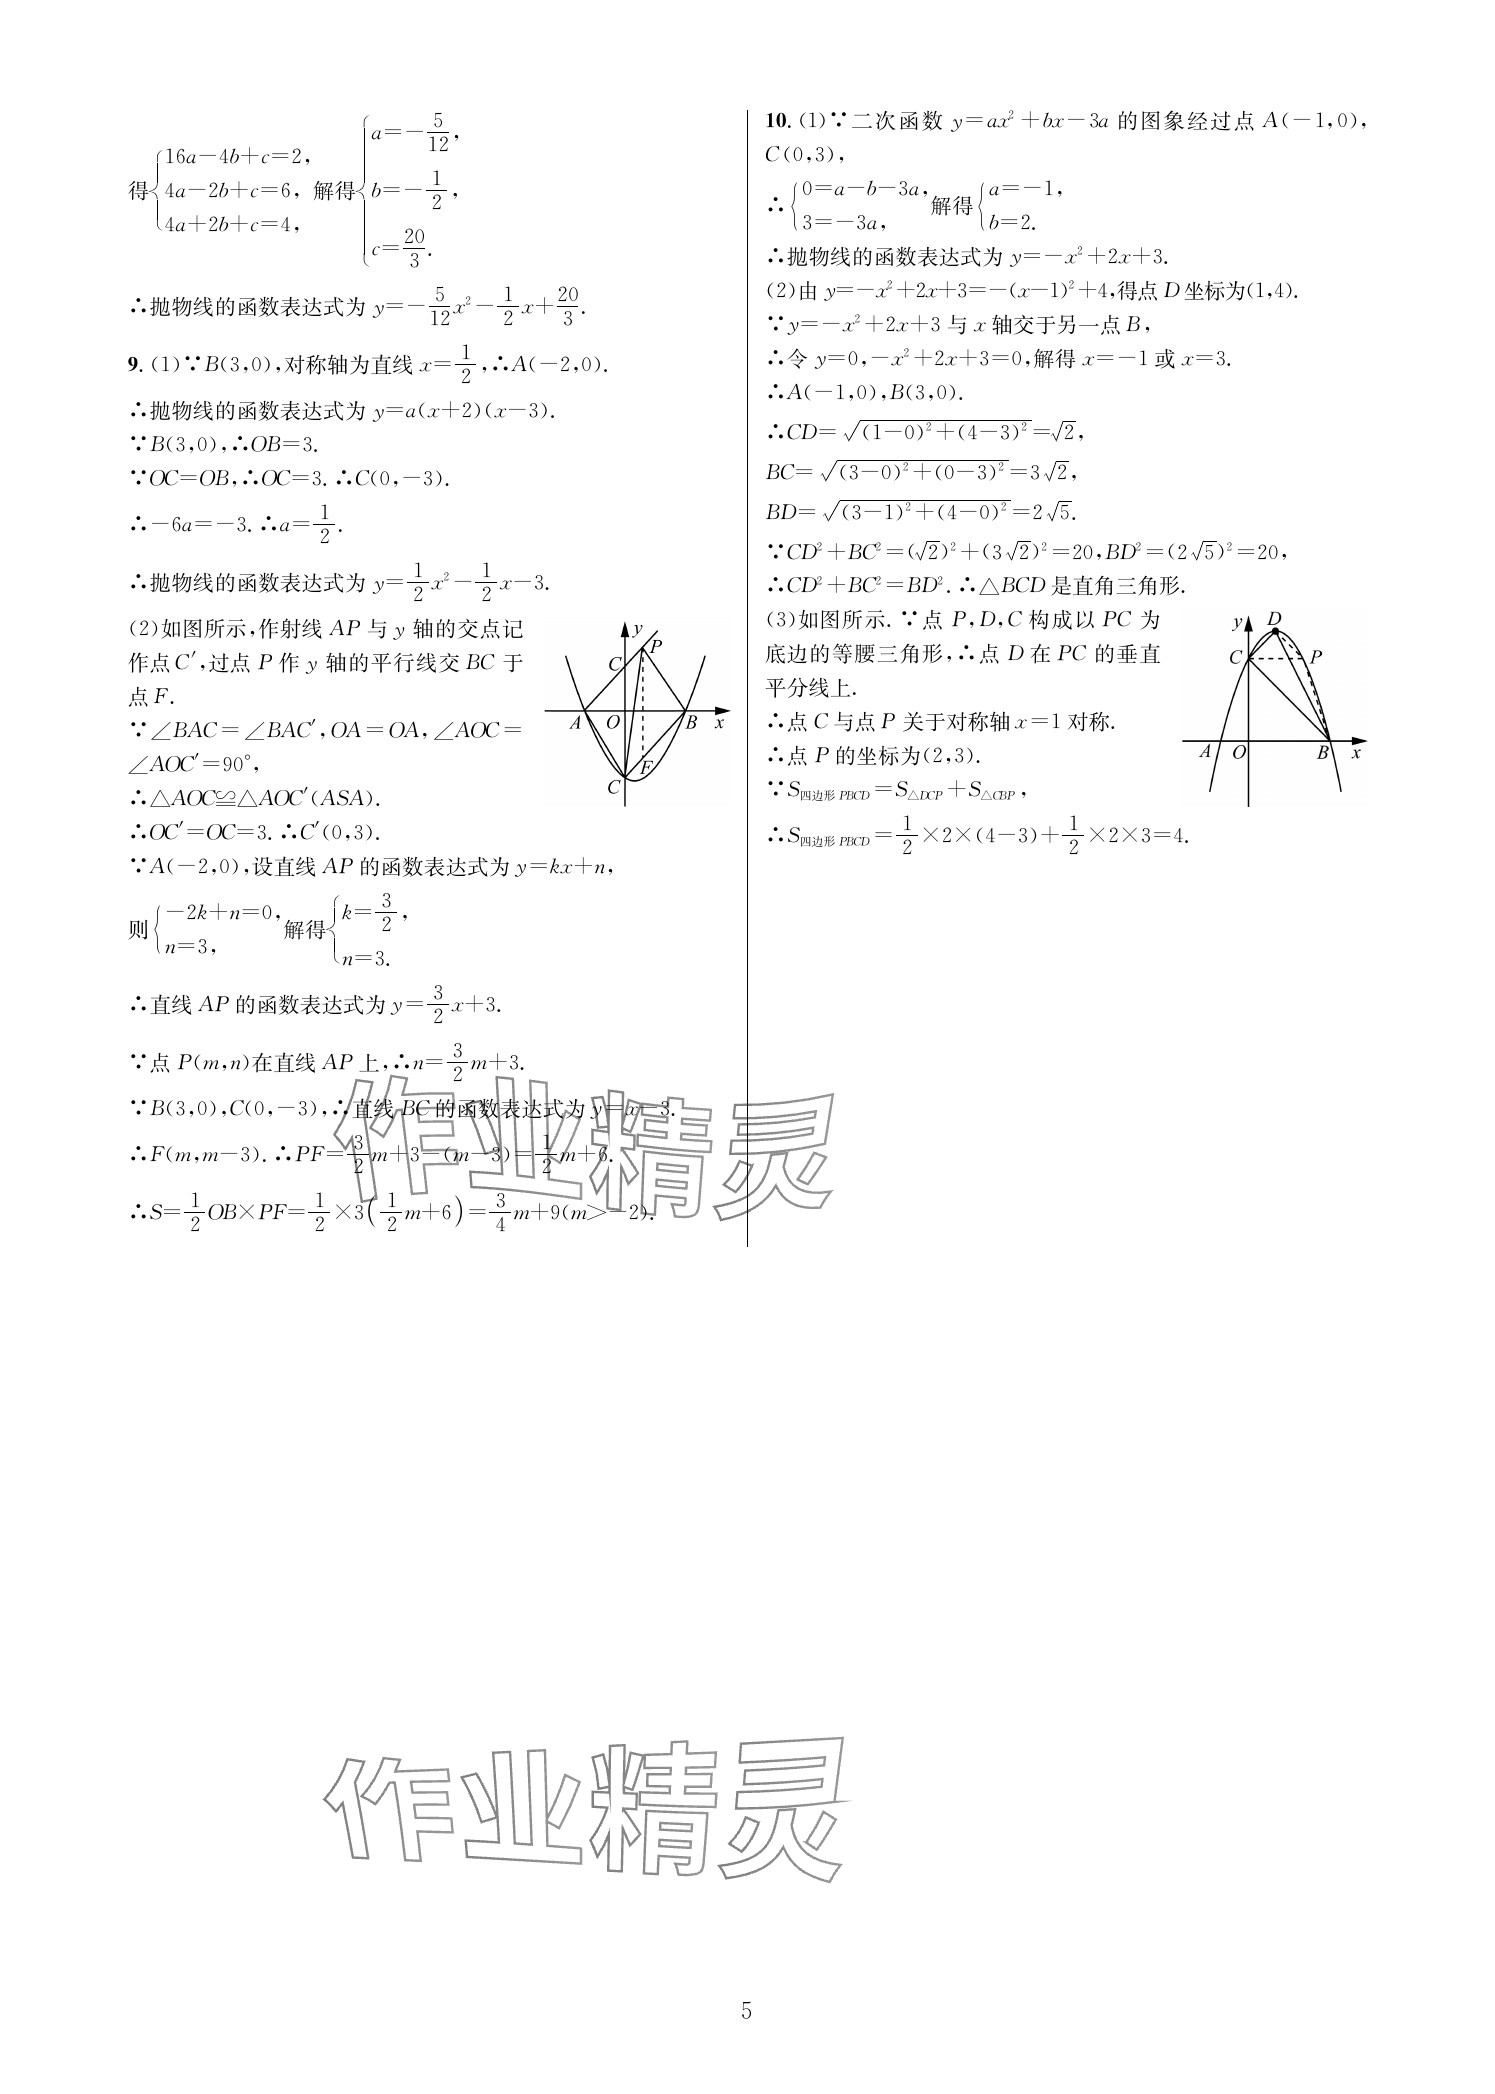 得{16a-4b+c=2, 4a-2b+c=6, 4a+2b+c=4, 解得{a=-5/12, b=-1/2, c=20/3.
∴抛物线的函数表达式为 y=-5/12x²-1/2x+20/3.
9. (1)∵B(3,0),对称轴为直线 x=1/2,∴A(-2,0).
∴抛物线的函数表达式为 y=a(x+2)(x-3).
∵B(3,0),∴OB=3.
∵OC=OB,∴OC=3. ∴C(0,-3).
∴-6a=-3. ∴a=1/2.
∴抛物线的函数表达式为 y=1/2x²-1/2x-3.
(2)如图所示,作射线 AP 与 y 轴的交点记
作点C′,过点 P 作 y 轴的平行线交 BC 于
点F.
∵∠BAC=∠BAC′,OA=OA,∠AOC=
∠AOC′=90°,
∴△AOC≌△AOC′(ASA).
∴OC′=OC=3. ∴C′(0,3).
y
C′
P
A
O
B
x
F
C
∵A(-2,0),设直线 AP 的函数表达式为 y=kx+n,
则{-2k+n=0, n=3, 解得{k=3/2, n=3.
∴直线 AP 的函数表达式为 y=3/2x+3.
∵点 P(m,n)在直线 AP 上,∴n=3/2m+3.
∵B(3,0),C(0,-3),∴直线 BC 的函数表达式为 y=x-3.
∴F(m,m-3). ∴PF=3/2m+3-(m-3)=1/2m+6.
∴S=1/2OB×PF=1/2×3(1/2m+6)=3/4m+9(m>-2).
10. (1)∵二次函数 y=ax²+bx-3a 的图象经过点 A(-1,0),
C(0,3),
∴{0=a-b-3a, 3=-3a, 解得{a=-1, b=2.
∴抛物线的函数表达式为 y=-x²+2x+3.
(2)由 y=-x²+2x+3=-(x-1)²+4,得点D坐标为(1,4).
∵y=-x²+2x+3 与 x 轴交于另一点 B,
∴令 y=0,-x²+2x+3=0,解得 x=-1 或 x=3.
∴A(-1,0),B(3,0).
∴CD=√((1-0)²+(4-3)²)=√2,
BC=√((3-0)²+(0-3)²)=3√2,
BD=√((3-1)²+(4-0)²)=2√5.
∵CD²+BC²=(√2)²+(3√2)²=20,BD²=(2√5)²=20,
∴CD²+BC²=BD². ∴△BCD 是直角三角形.
(3)如图所示. ∵点 P,D,C 构成以 PC 为
底边的等腰三角形,∴点 D 在 PC 的垂直
平分线上.
∴点 C 与点 P 关于对称轴 x=1 对称.
∴点 P 的坐标为(2,3).
∵S四边形PBCD=S△DCP+S△CBP,
∴S四边形PBCD=1/2×2×(4-3)+1/2×2×3=4.
y
D
C
P
A
O
B
x
作业精灵
作业精灵
5